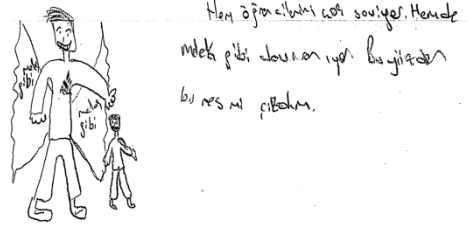 Hem öğrencilerini çok seviyor. Hemde
melek gibi davranıyor. Bu yüzden
bu resmi çizdim.
melek
gibi
melek
gibi